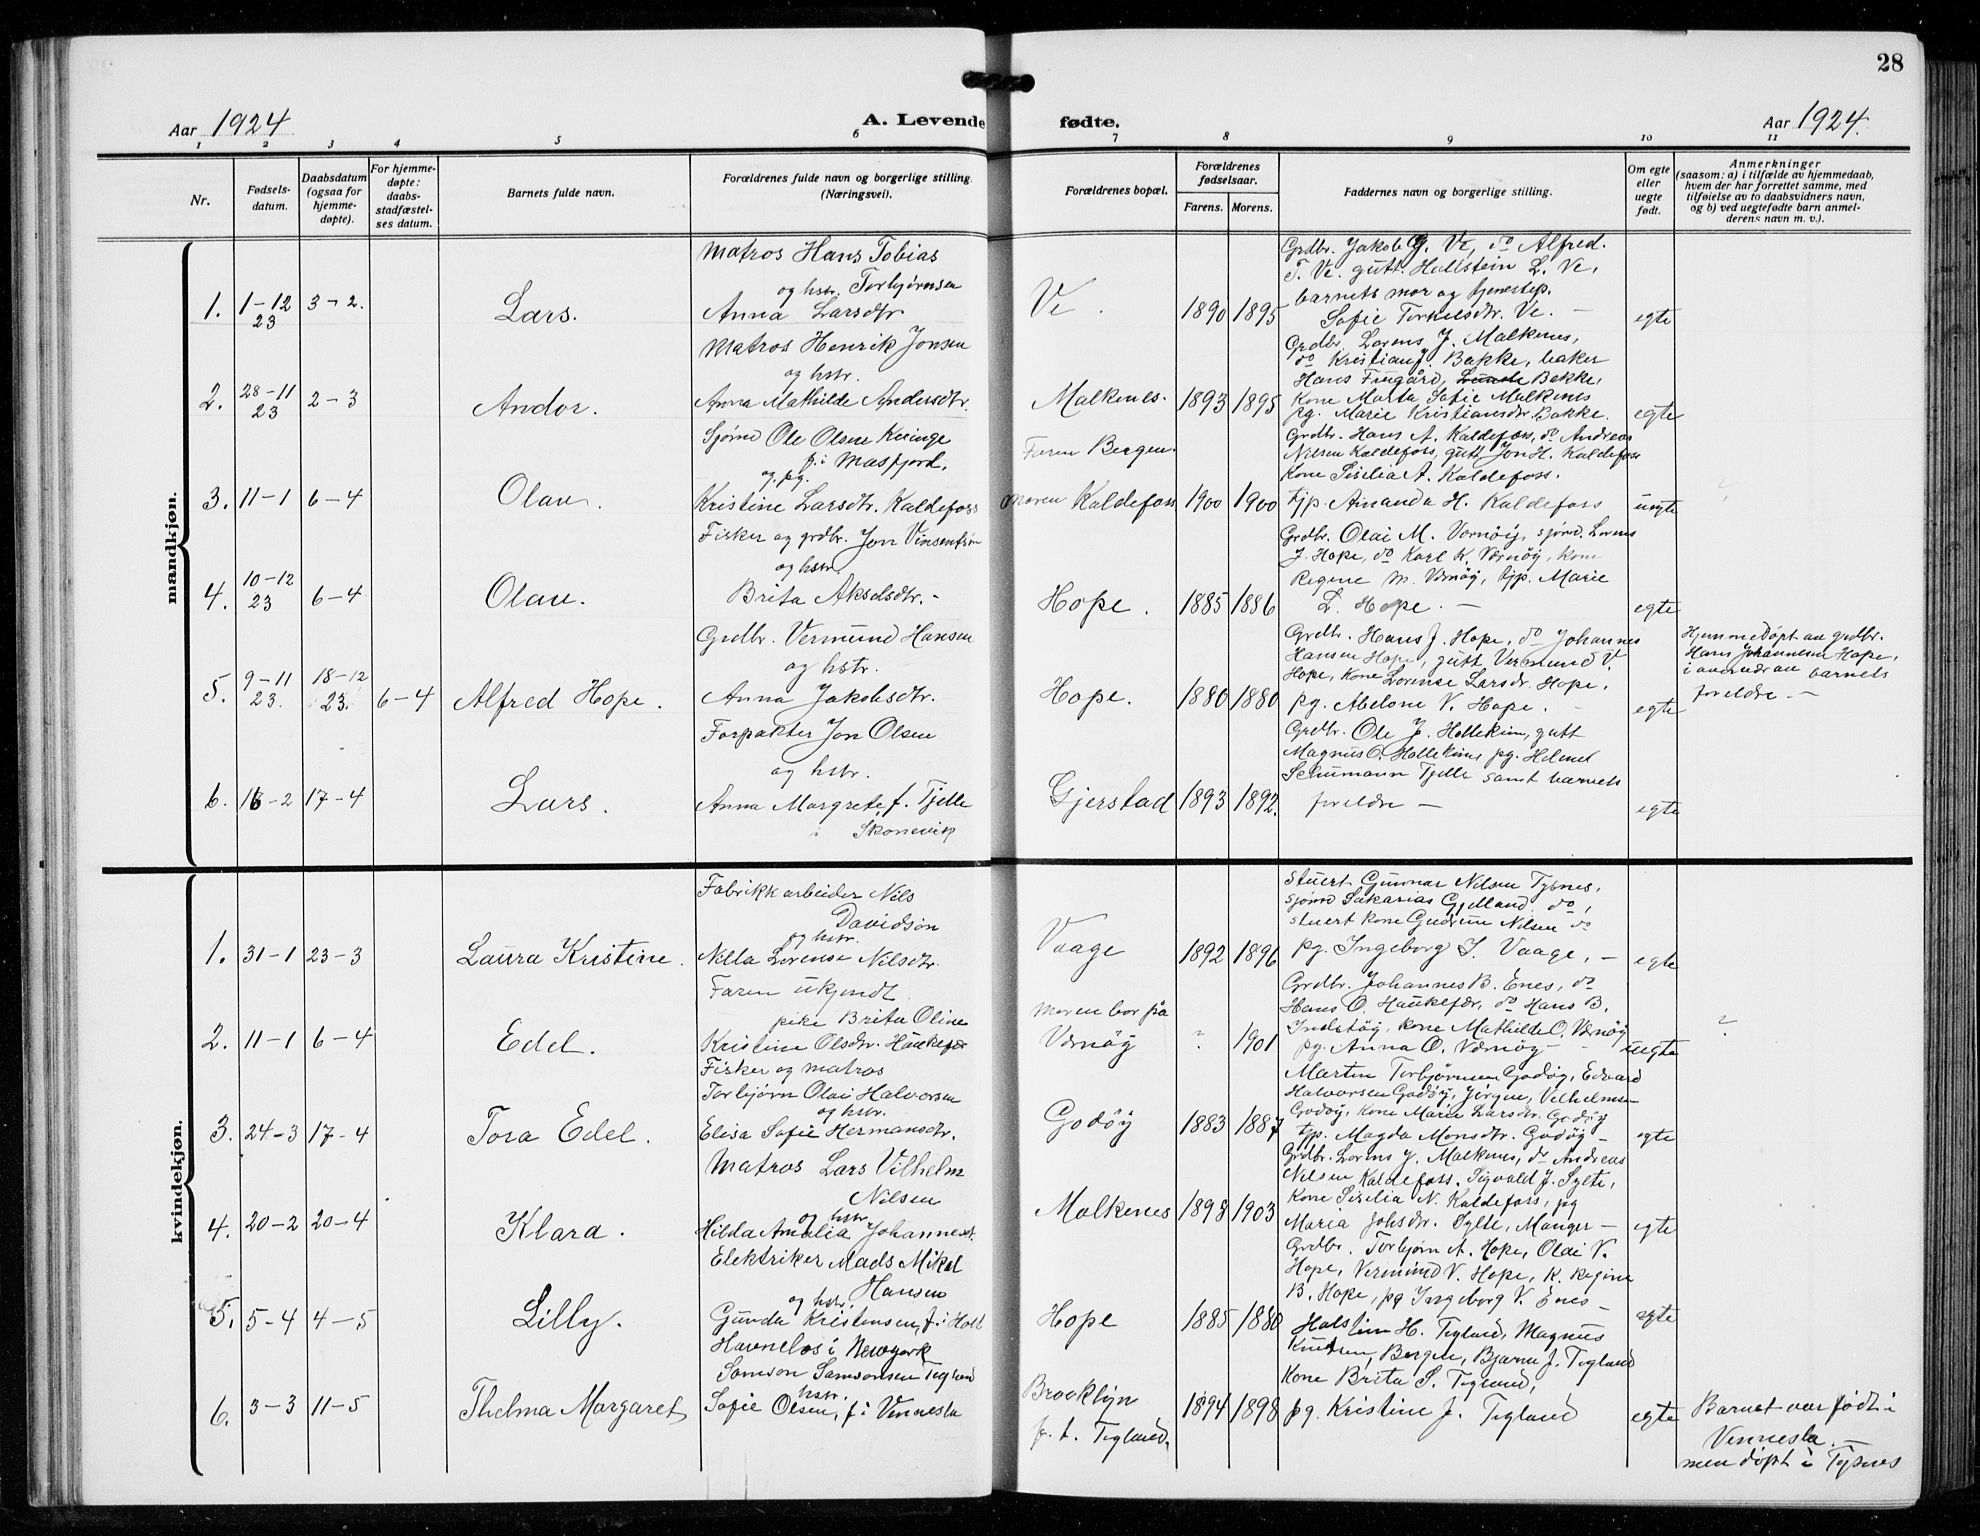 28
Aar 1924
A. Levende fødte.
Aar 1924.
1 2 3 4 5 6 7 8 9 10 11
Nr.
Fødsels-
datum.
Daabsdatum
(ogsaa for
hjemme-
døpte).
For hjemme-
døpte:
daabs-
stadfæstel-
ses datum.
Barnets fulde navn.
Forældrenes fulde navn og borgerlige stilling.
(Næringsvei).
Forældrenes bopæl.
Forældrenes
fødselsaar.
Farens. Morens.
Faddernes navn og borgerlige stilling.
Om egte
eller
uegte
født.
Anmerkninger
(saasom: a) i tilfælde av hjemmedaab,
hvem der har forrettet samme, med
tilføielse av to daabsvidners navn,
og b) ved uegtefødte barn anmel-
derens navn m. v.).
mandkjøn.
1. 1-12 23 3-2. Lars.
Matros Hans Tobias
Torbjørnsen
og hstr.
Anna Larsdtr.
Ve. 1890 1895
Grdbr. Jakob G. Ve, do Alfred
T. Ve. gutt. Hallstein L. Ve,
barnets mor og tjenestep.
Sofie Torkelsdtr. Ve. –
egte
2. 28-11 23 2-3 Andor.
Matros Henrik Jonsen
og hstr.
Anna Mathilde Andersdtr.
Malkenes. 1893 1895
Grdbr. Lorens J. Malkenes,
do Kristian J. Bakke, baker
Hans Fuugård, Lunde Bakke,
Kone Marta Sofie Malkenes
pg. Marie Kristiansdtr. Bakke.
egte
3. 11-1 6-4 Olav.
Sjømd Ole Olsen Kvinge
f. i Masfjord.
og pg.
Kristine Larsdtr. Kaldefoss
Faren Bergen.
Moren Kaldefoss 1900 1900
Grdbr. Hans A. Kaldefoss, do Andreas
Nilsen Kaldefoss, gutt Jon H. Kaldefoss
Kone Sisilia A. Kaldefoss.
tjp. Amanda H. Kaldefoss
uegte
?
4. 10-12 23 6-4 Olav.
Fisker og grdbr. Jon Vinsentsøn
og hstr.
Brita Akselsdtr. –
Hope. 1885 1886
Grdbr. Olai M. Vernøy, sjømd. Lorens
J. Hope, do Karl K. Vernøy, kone
Regine M. Vernøy, tjp. Marie
L. Hope. –
egte
5. 9-11 23. 18-12 23. 6-4 Alfred Hope.
Grdbr. Vermund Hansen
og hstr.
Anna Jakobsdtr.
Hope. 1880 1880
Grdbr. Hans J. Hope, do Johannes
Hansen Hope, gutt Vermund V.
Hope, kone Lorense Larsdr. Hope,
pg. Abelone V. Hope. –
egte
Hjemmedøpt av grdbr.
Hans Johannesen Hope,
i averudr av barnets
foreldre –
6. 16-2 17-4 Lars.
Forpakter Jon Olsen
og hstr.
Anna Margrete, f. Tjelle
i Skonevik
Gjerstad 1893 1892.
Grdbr. Ole J. Hollekim, gutt
Magnus O. Hollekim pg. Helena
Schumann Tjelle samt barnets
foreldre –
egte
kvindekjøn.
1. 31-1 23-3 Laura Kristine.
Fabrikkarbeider Nils
Davidsøn
og hstr.
Nilla Lorense Nilsdtr.
Vaage 1892 1896
Stuert Gunnar Nilsen Tysnes,
sjømd Sakarias Gjelland do,
stuert kone Gudrun Nilsen do
pg. Ingeborg S. Vaage, –
egte
2. 11-1 6-4 Edel.
Faren ukjendt
pike Brita Oline
Kristine Olsdtr. Haukefær
Moren bor på
Vernøy ? 1901
Grdbr. Johannes B. Enes, do
Hans O. Haukefær, do Hans B.
Indstøy, kone Mathilde O. Vernøy
pg. Anna O. Vernøy –
uegte
?
3. 24-3 17-4 Tora Edel.
Fisker og matros
Torbjørn Olai Halvorsen
og hstr.
Elisa Sofie Hermansdtr.
Godøy 1883 1887
Martin Torbjørnsen Godøy, Edvard
Halvorsen Godøy, Jørgen Vilhelmsen
Godøy, kone Marie Larsdr. Godøy
tjp. Magda Monsdtr. Godøy –
egte
4. 20-2 20-4 Klara.
Matros Lars Vilhelm
Nilsen
og hstr.
Hilda Amalia Johannesdt.
Malkenes 1898 1903
Grdbr. Lorens J. Malkenes, do Andreas
Nilsen Kaldefoss. Sigvald J. Sylte,
Kone Sisilia N. Kaldefoss, pg
Maria Johsdr. Sylte, Manger –
egte
5. 5-4 4-5 Lilly.
Elektriker Mads Mikal
Hansen
og hstr.
Gunda Kristensen, f. i Holt
Hope 1885 1880
Grdbr. Torbjørn A. Hope, Olai V.
Hope, Vermund V. Hope, K. Regine
B. Hope, pg Ingeborg V. Enes –
egte
6. 3-3 11-5 Thelma Margaret
Havnelos i Newyork
Samson Samsonsen Tegland
hstr.
Sofie Olsen, f. i Vennesla
Brooklyn
f. t. Tegland. 1894 1898
Halstein H. Tegland, Magnus
Knudsen, Bergen, Bjarne J. Tegland
Kone Brita S. Tegland,
pg. Kristine J. Tegland
egte
Barnet var født i
Vennesla. –
men døpt i Tysnes